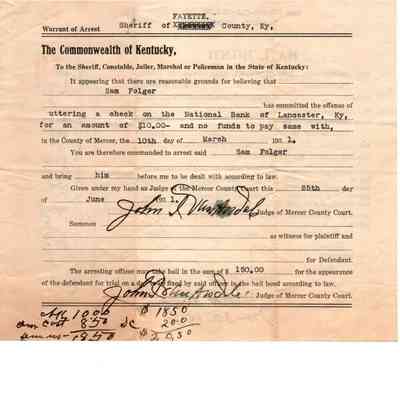 FAYETTE.
Warrant of Arrest Sheriff of County, Ky,
The Commonwealth of Kentucky,
To the Sheriff, Constable, Jailer, Marshal or Policeman in the State of Kentucky:
It appearing that there are reasonable grounds for believing that
Sam Folger
has committed the offense of
uttering a check on the National Bank of Lancaster, Ky,
for an amount of $10.00- and no funds to pay same with,
in the County of Mercer, the 10th day of March 1931.
You are therefore commanded to arrest said Sam Folger
and bring him before me to be dealt with according to law.
Given under my hand as Judge of the Mercer County Court this 25th day
of June 1931.
John Judge of Mercer County Court.
Summon
as witness for plaintiff and
for Defendant.
The arresting officer may take bail in the sum of $ 150.00 for the appearance
of the defendant for trial on a day fixed by said officer in the bail bond according to law.
John Judge of Mercer County Court.
1000 $ 1850
Cost 850 200
1850 $ 20.50